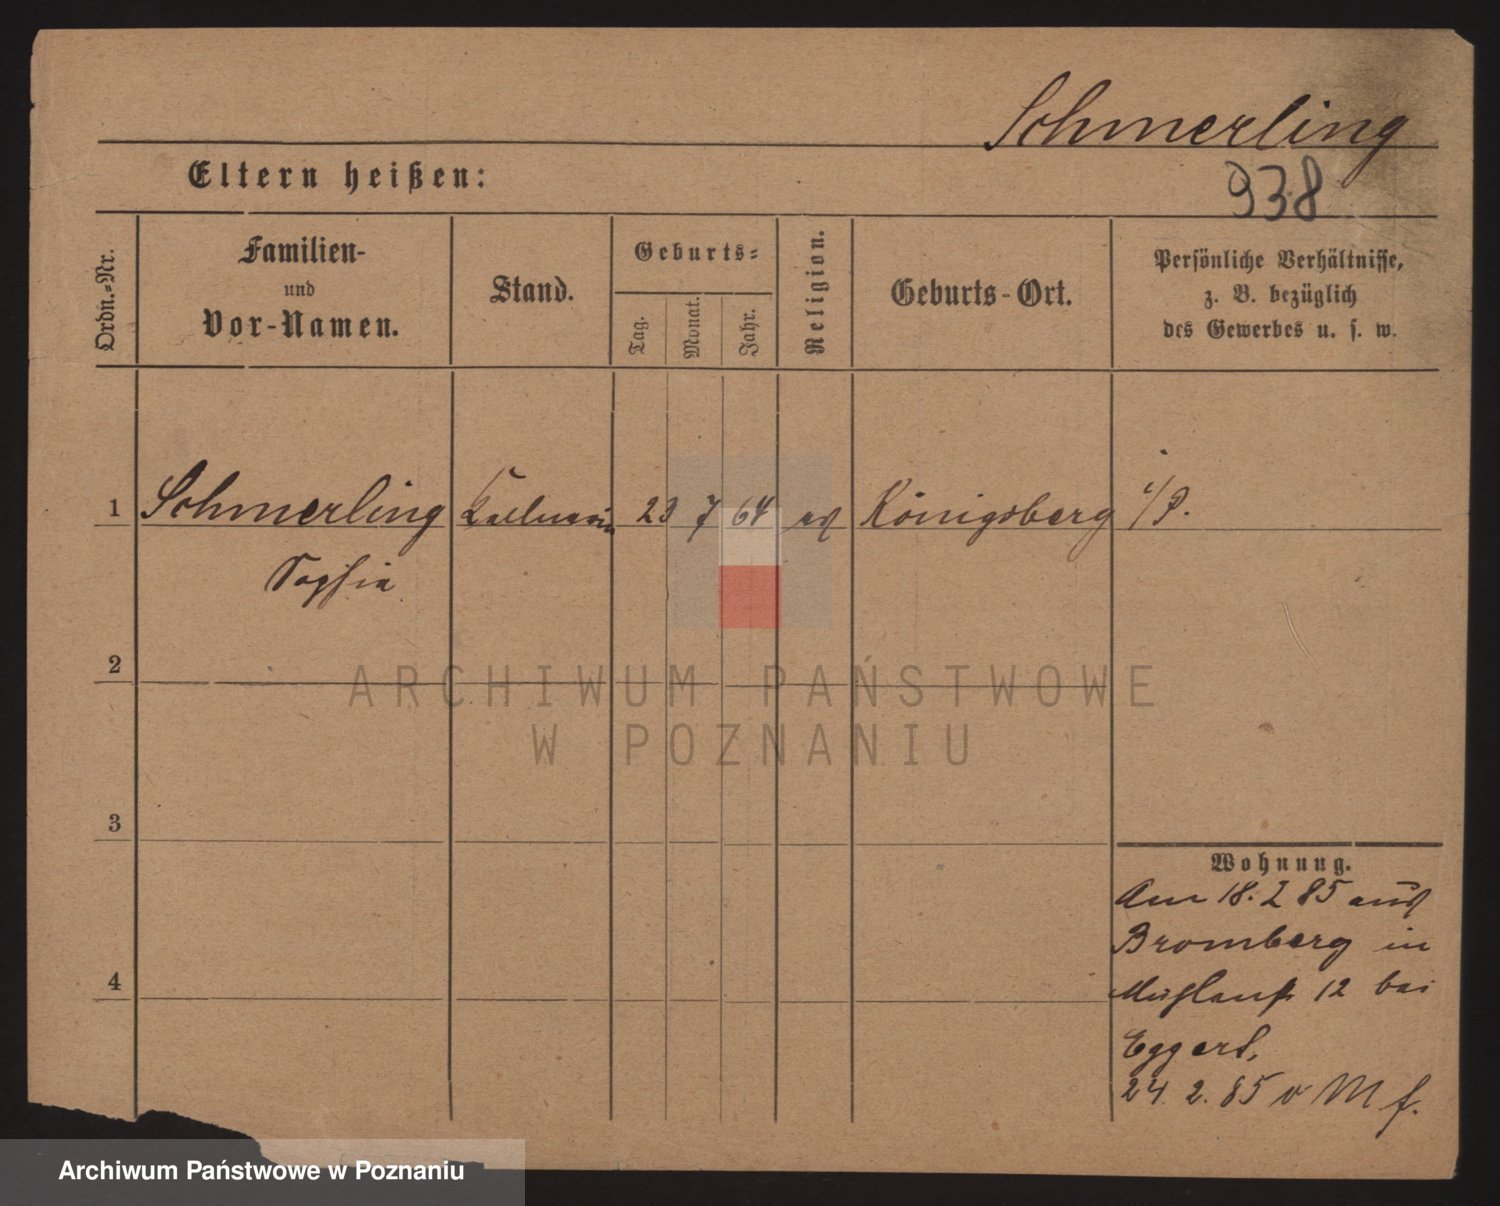 Schmerling
938
Eltern heißen:
Ordn.-Nr.
Familien-
und
Vor-Namen.
Stand.
Geburts-
Tag.
Monat.
Jahr.
Religion.
Geburts-Ort.
Persönliche Verhältnisse,
z. B. bezüglich
des Gewerbes u. s. w.
1 Schmerling 23 7 64 Königsberg i/P.
Sophie
2
ARCHIWUM PAŃSTWOWE
W POZNANIU
3
Wohnung.
Am 18. 2 85 aus
Bromberg in
12 bei
4
Eggert,
24. 2. 85 v M f.
Archiwum Państwowe w Poznaniu